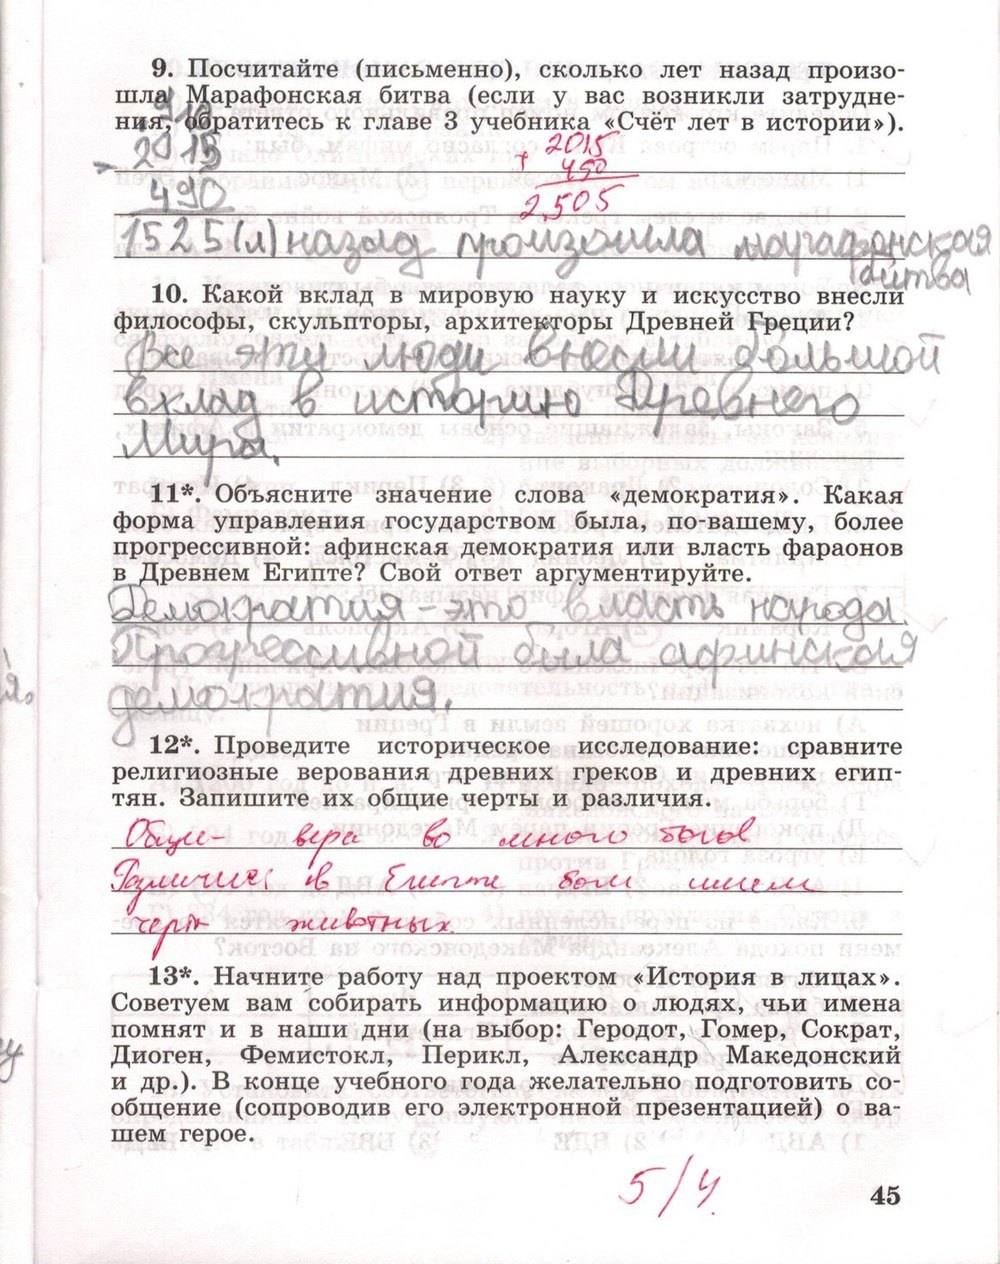 9. Посчитайте (письменно), сколько лет назад произо-
шла Марафонская битва (если у вас возникли затрудне-
ния, обратитесь к главе 3 учебника «Счёт лет в истории»).
2015
- 2015
+ 450
490
2.505
1525 (л) назад произошла марафонская
битва
10. Какой вклад в мировую науку и искусство внесли
философы, скульпторы, архитекторы Древней Греции?
Все эти люди внесли большой
вклад в историю Древнего
Мира.
11*. Объясните значение слова «демократия». Какая
форма управления государством была, по-вашему, более
прогрессивной: афинская демократия или власть фараонов
в Древнем Египте? Свой ответ аргументируйте.
Демократия - это власть народа.
Прогрессивной была афинская
демократия.
12*. Проведите историческое исследование: сравните
религиозные верования древних греков и древних егип-
тян. Запишите их общие черты и различия.
Общее - вера во много богов
в Египте боги имели
черты животных.
13*. Начните работу над проектом «История в лицах».
Советуем вам собирать информацию о людях, чьи имена
помнят и в наши дни (на выбор: Геродот, Гомер, Сократ,
Диоген, Фемистокл, Перикл, Александр Македонский
и др.). В конце учебного года желательно подготовить со-
общение (сопроводив его электронной презентацией) о ва-
шем герое.
5/4
45